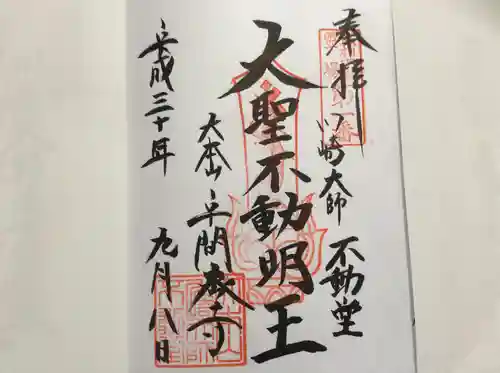 奉拝
川崎大師 不動堂
大聖不動明王
大本山 平間教寺
平成三十年
九月十八日